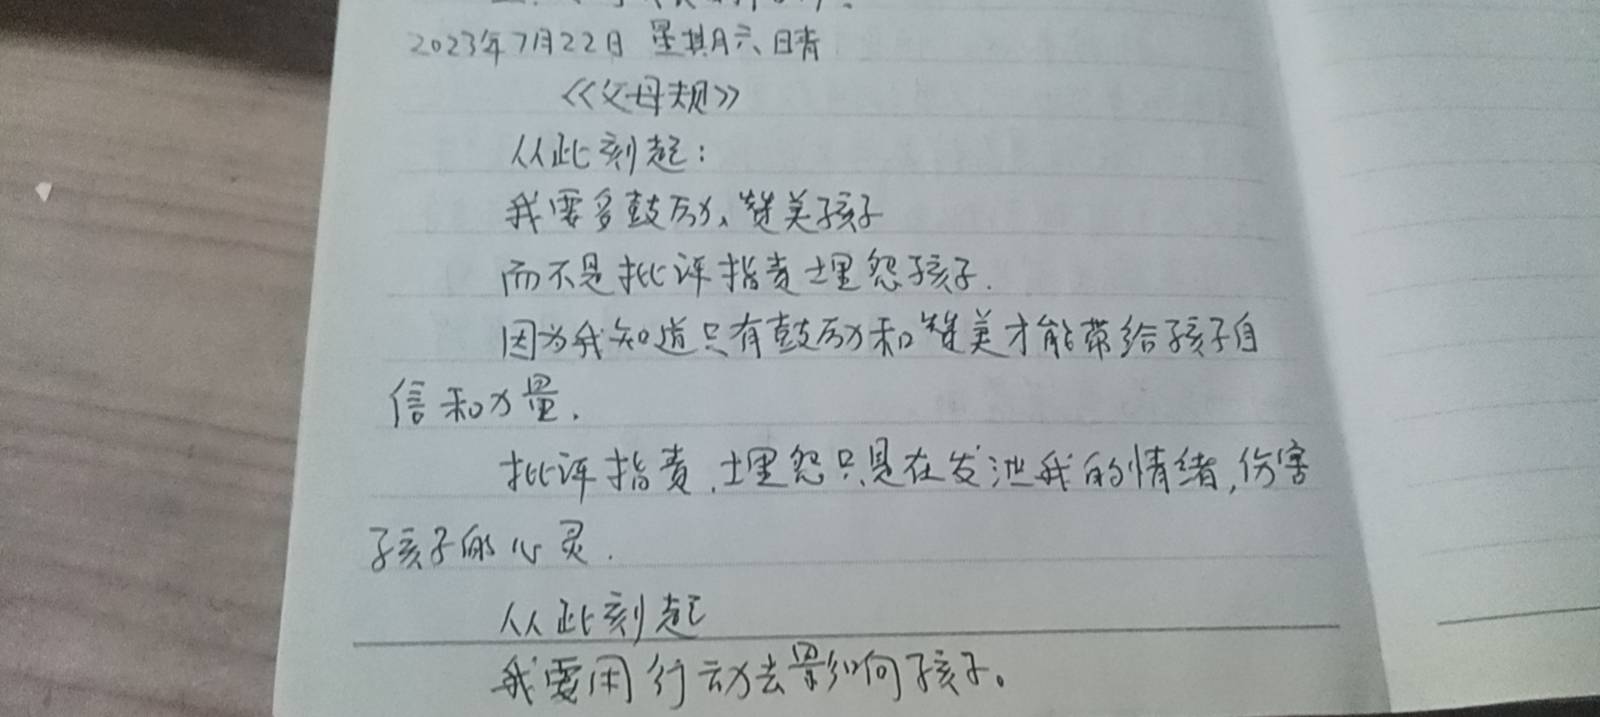 2023年7月22日 星期六、晴
《父母规》
从此刻起:
我要多鼓励、赞美孩子
而不是批评指责埋怨孩子.
因为我知道只有鼓励和赞美才能带给孩子自
信和力量.
批评指责.埋怨只是在发泄我的情绪,伤害
孩子的心灵.
从此刻起
我要用行动去影响孩子。